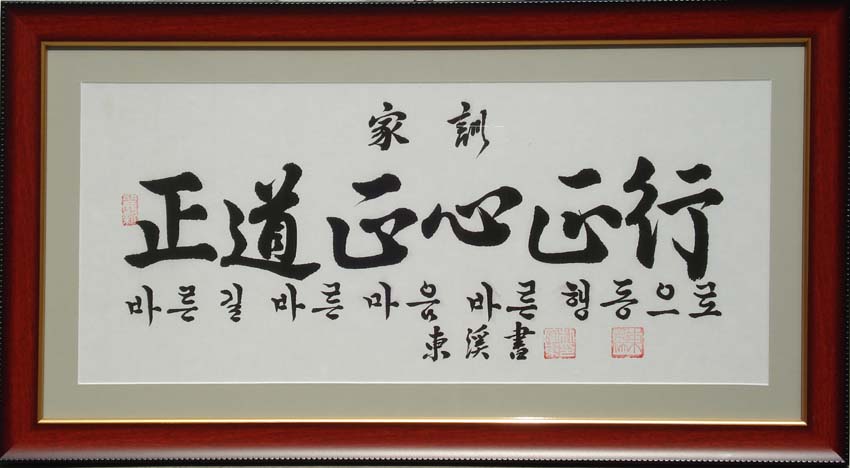 家訓
正道正心正行
바른길 바른마음 바른행동으로
東溪書